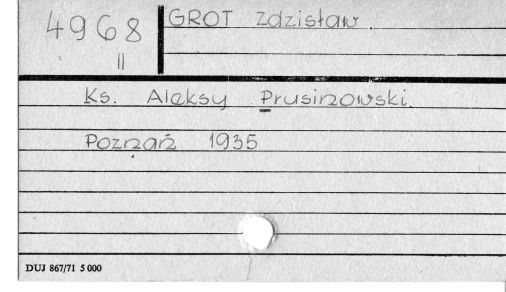 4968
II
GROT Zdzisław
Ks. Aleksy Prusinowski.
Poznań 1935
DUJ 867/71 5 000